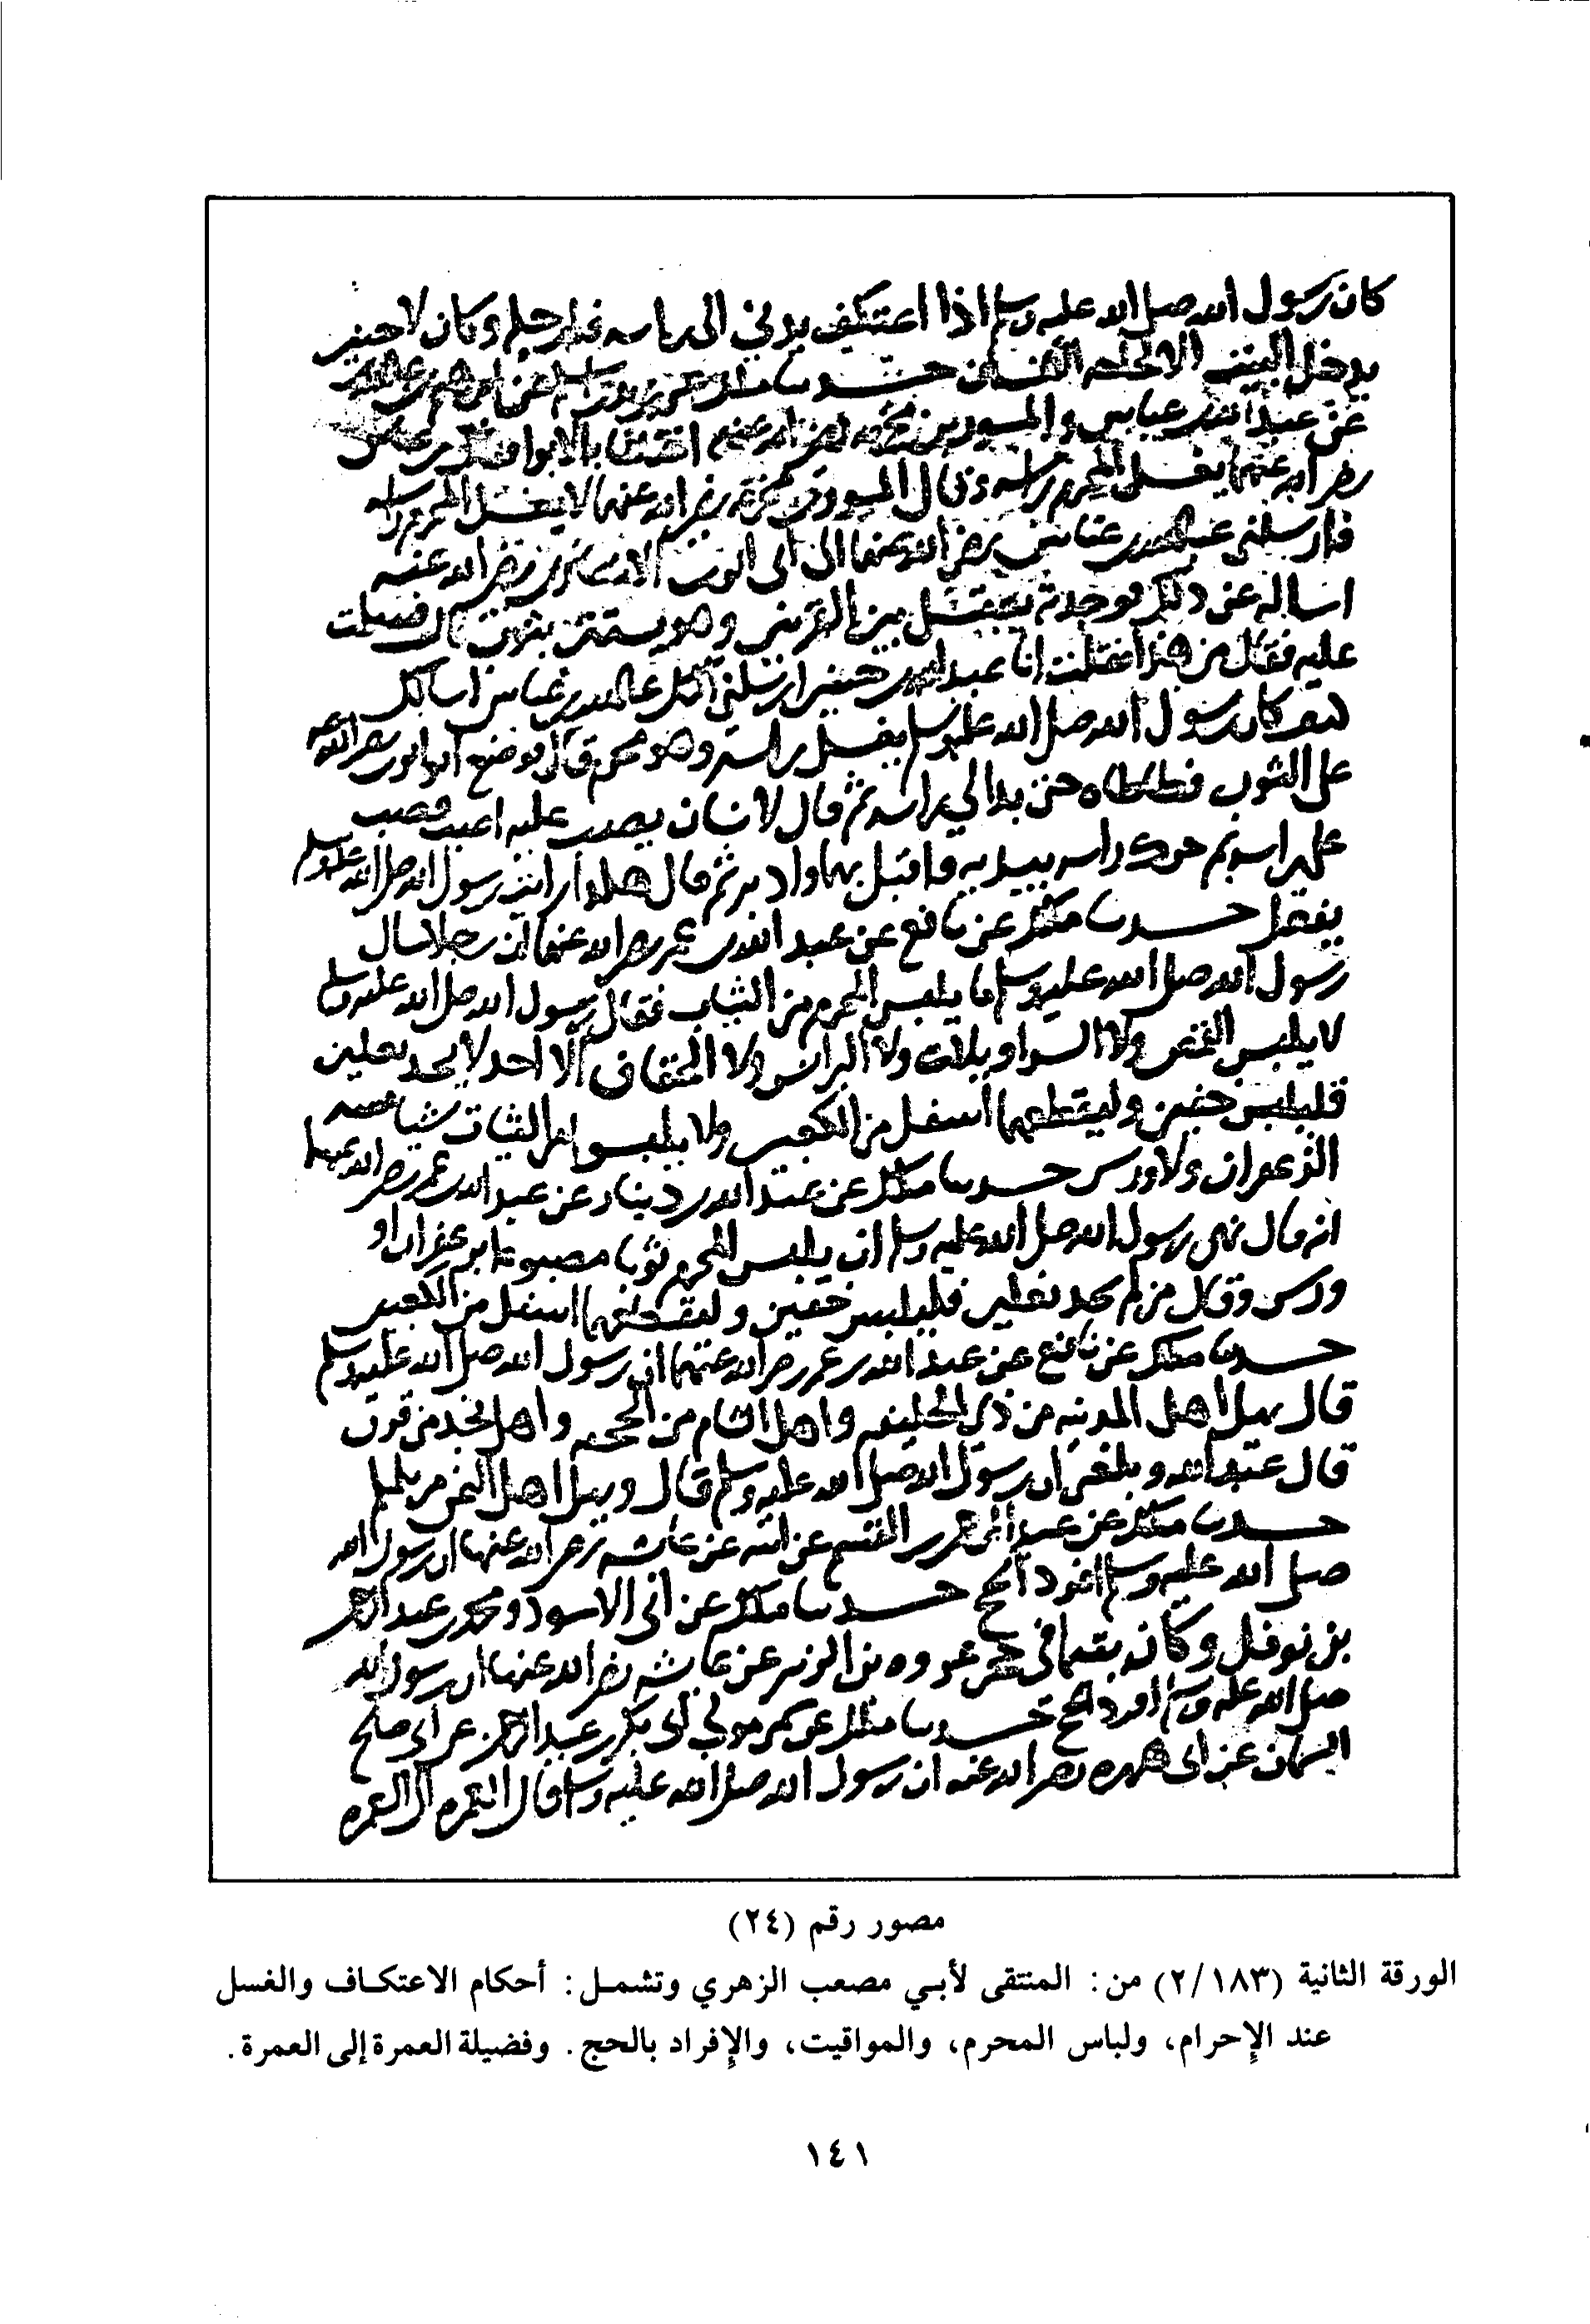 كان رسول الله صلى الله عليه وسلم اذا اعتكف يدني الى راسه فارجله وكان لا
يدخل البيت الا لحاجه الانسان حدثنا ملك عن زيد بن اسلم عن ابرهيم بن عبد الله
عن عبد الله بن عباس والمسور بن مخرمه رضي الله عنهم اختلفا بالابوا فقال بن عباس
رضي الله عنهما يغسل المحرم راسه وقال المسور بن مخرمة رضي الله عنهما لا يغسل المحرم راسه
فارسلني عبد الله بن عباس رضي الله عنهما الى ابي ايوب الانصاري رضي الله عنه
اساله عن ذلك فوجدته يغتسل بين القرنين وهو يستتر بثوب قال فسلمت
عليه فقال من هذا فقلت انا عبد الله بن حنين ارسلني اليك عبد الله بن عباس اسالك
كيف كان رسول الله صلى الله عليه وسلم يغسل راسه وهو محرم قال فوضع ابو ايوب رضي الله عنه
على الثوب فطاطاه حتى بدا لي راسه ثم قال لانسان يصب عليه اصبب فصب
على راسه ثم حرك راسه بيديه فاقبل بهما وادبر ثم قال هكذا رايت رسول الله صلى الله عليه وسلم
يفعل حدثنا ملك عن نافع عن عبد الله بن عمر رضي الله عنهما ان رجلا سال
رسول الله صلى الله عليه وسلم ما يلبس المحرم من الثياب فقال رسول الله صلى الله عليه وسلم
لا يلبس القمص ولا السراويلات ولا البرانس ولا الخفاف الا احد لا يجد نعلين
فليلبس خفين وليقطعهما اسفل من الكعبين ولا يلبسوا من الثياب شيا مسه
الزعفران ولا ورس حدثنا ملك عن عبد الله بن دينار عن عبد الله بن عمر رضي الله عنهما
انه قال نهى رسول الله صلى الله عليه وسلم ان يلبس المحرم ثوبا مصبوغا بزعفران او
ورس وقال من لم يجد نعلين فليلبس خفين وليقطعهما اسفل من الكعبين
حدثنا ملك عن نافع عن عبد الله بن عمر رضي الله عنهما ان رسول الله صلى الله عليه وسلم
قال يهل اهل المدينه من ذي الحليفه واهل الشام من الجحفه واهل نجد من قرن
قال عبد الله وبلغني ان رسول الله صلى الله عليه وسلم قال ويهل اهل اليمن من يلملم
حدثنا ملك عن عبد الرحمن بن القسم عن ابيه عن عايشه رضي الله عنها ان رسول الله
صلى الله عليه وسلم افرد الحج حدثنا ملك عن ابي الاسود محمد بن عبد الرحمن
بن نوفل وكان يتيما في حجر عروه بن الزبير عن عايشه رضي الله عنها ان رسول الله
صلى الله عليه وسلم افرد الحج حدثنا ملك عن سمي مولى ابي بكر بن عبد الرحمن عن ابي صلح
السمان عن ابي هريره رضي الله عنه ان رسول الله صلى الله عليه وسلم قال العمره الى العمره
مصور رقم (٢٤)
الورقة الثانية (٢/١٨٣) من: المنتقى لأبي مصعب الزهري وتشمل: أحكام الاعتكاف والغسل
عند الإحرام، ولباس المحرم، والمواقيت، والإفراد بالحج. وفضيلة العمرة إلى العمرة.
١٤١